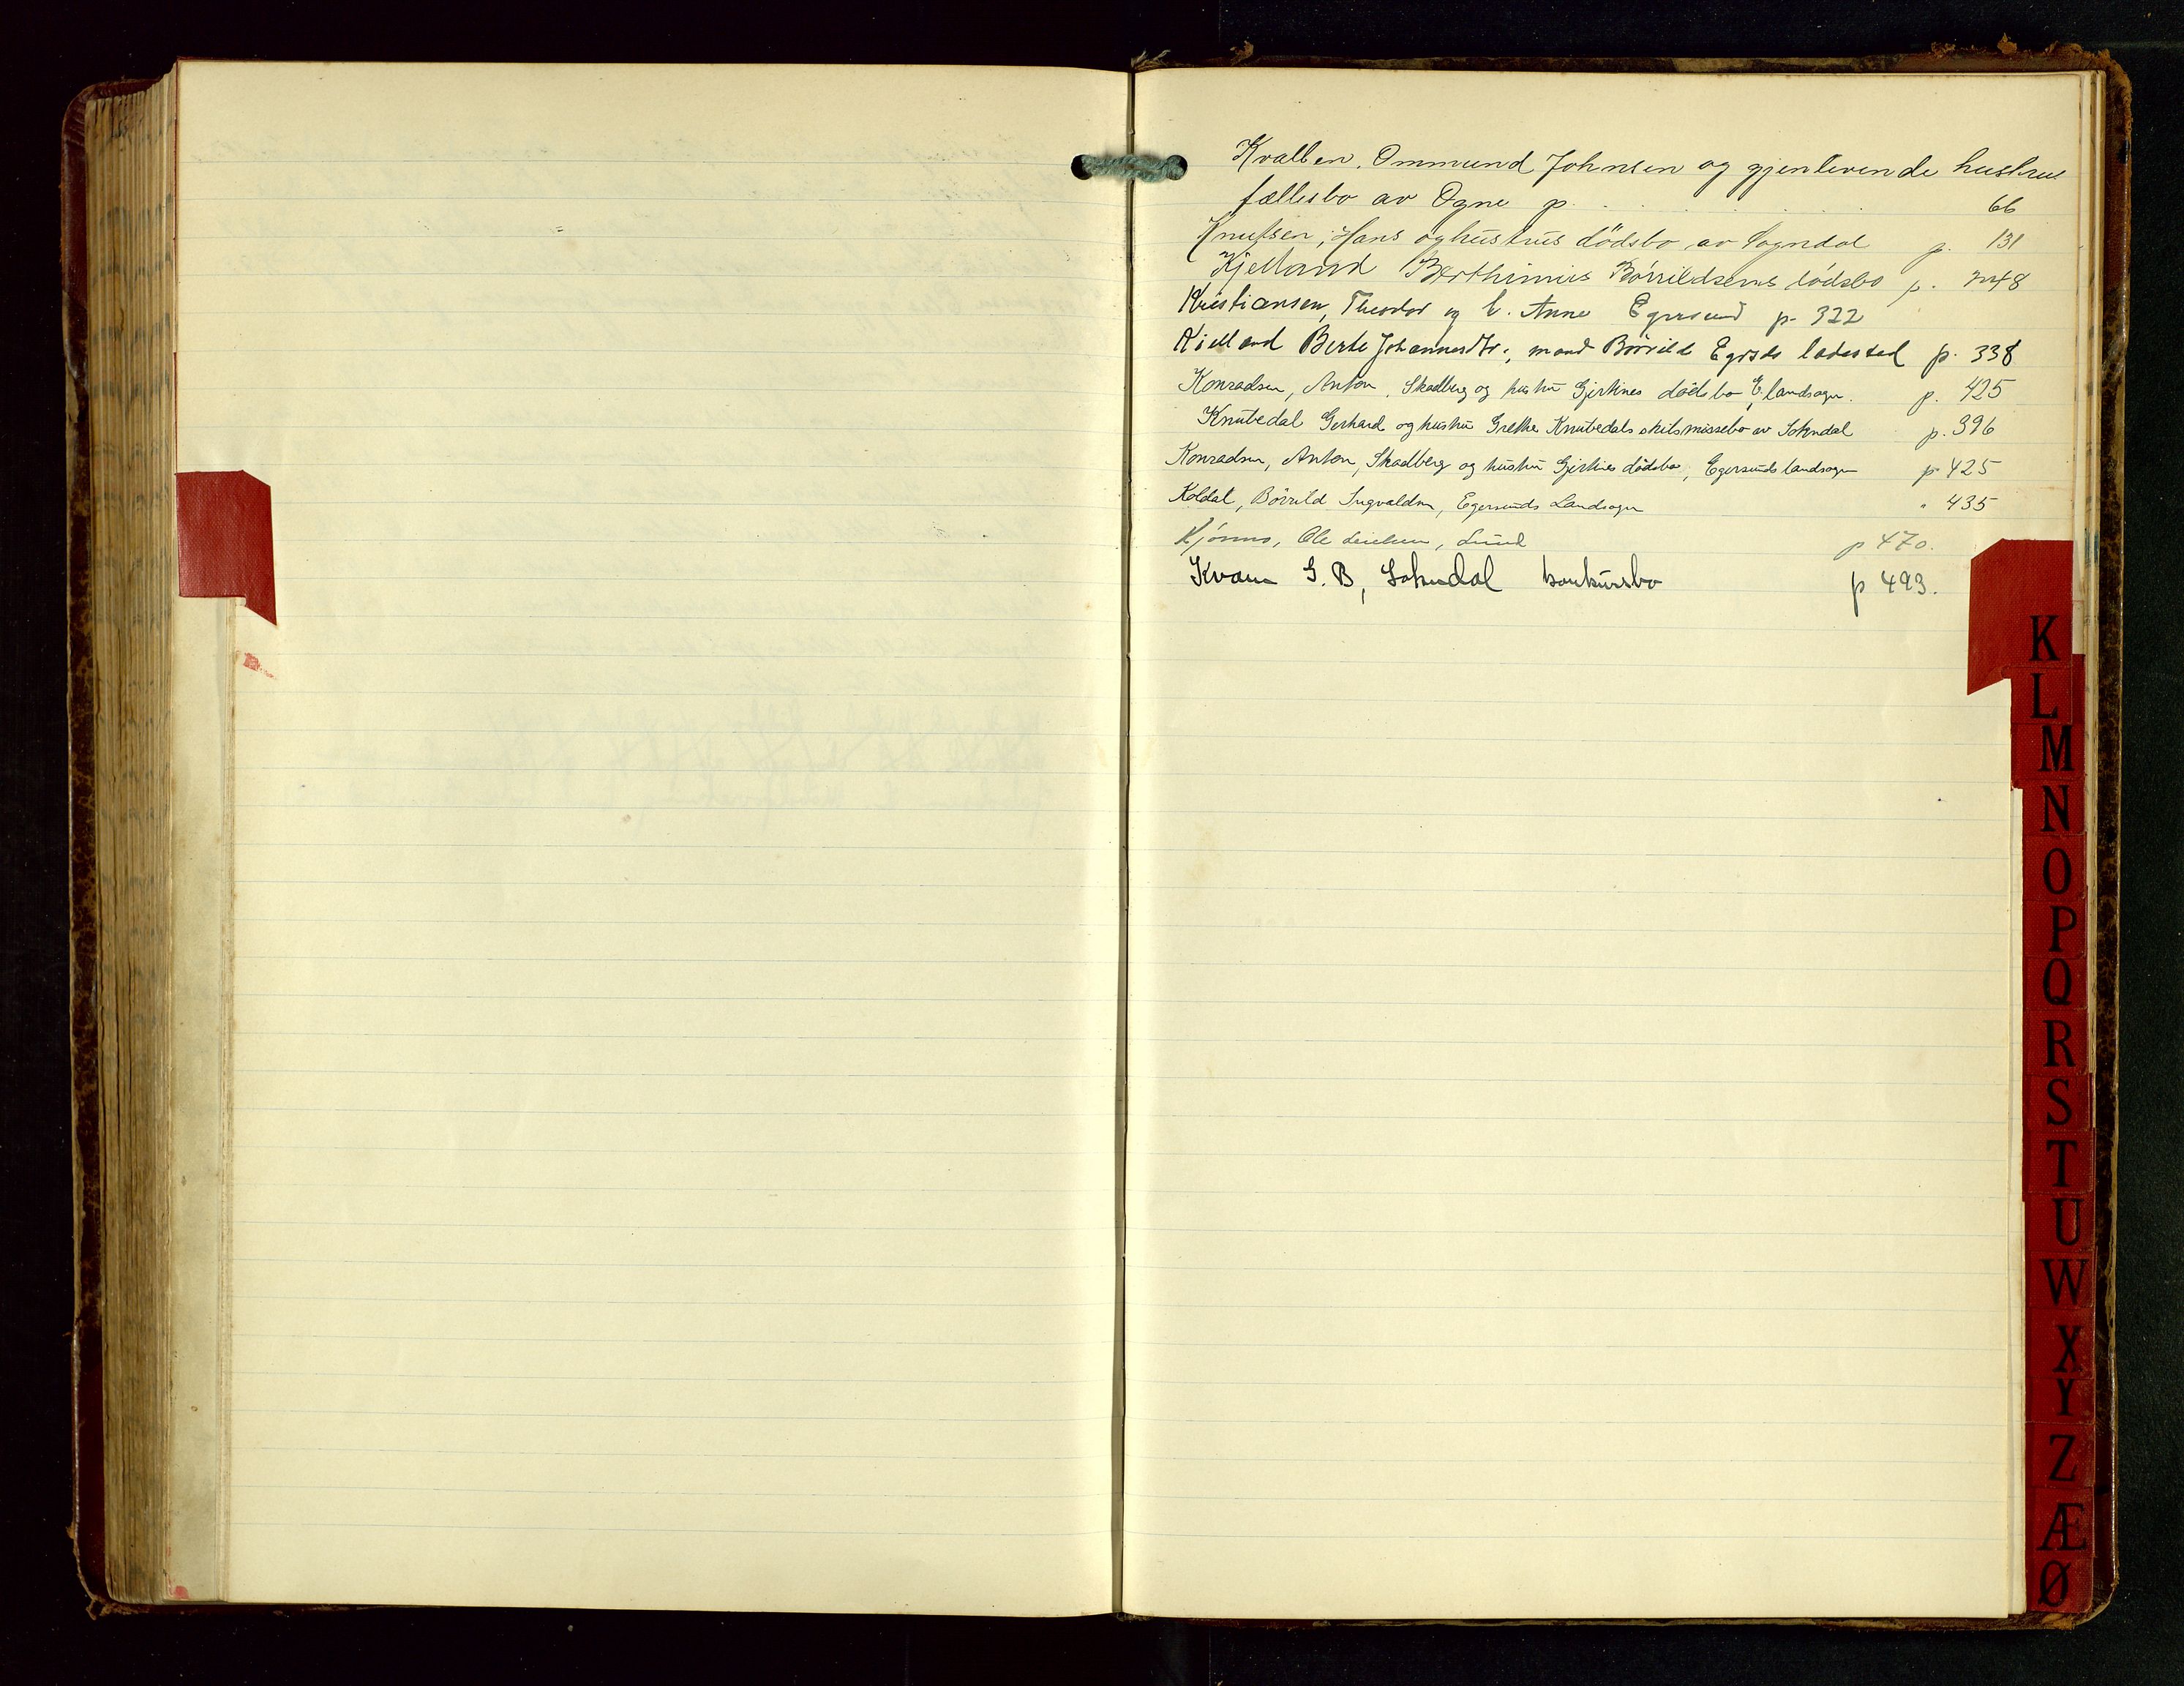 Kvalben, Ommund Johnsen og gjenlevende hustrus
fællesbo av Ogne p. . . . . . 66
Knutsen, Hans og hustrus dödsbo av Sogndal p. 131
Kjelland Berthinius Børrildsens dødsbo p. 248
Kristiansen, Theodor og h. Anne Egersund p. 322
Kielland Berte Johannesdtr., mand Børrild Egrsds ladested p. 338
Konradsen, Anton, Skadberg og hustru Gjertines dødsbo, E. landsogn. p. 425
Knubedal Gerhard og hustru Grethe Knubedals skilsmissebo av Sokndal p. 396
Konradsen, Anton, Skadberg og hustru Gjertines dödsbo, Egersunds landsogn p 425
Koldal, Börrild Ingvaldsen, Egersunds Landsogn " 435
Kjørmo, Ole, Lund p 470.
Kvam G. B, Sokndal konkursbo p 493.
K
L
M
N
O
P
Q
R
S
T
U
W
X
Y
Z
Æ
Ø